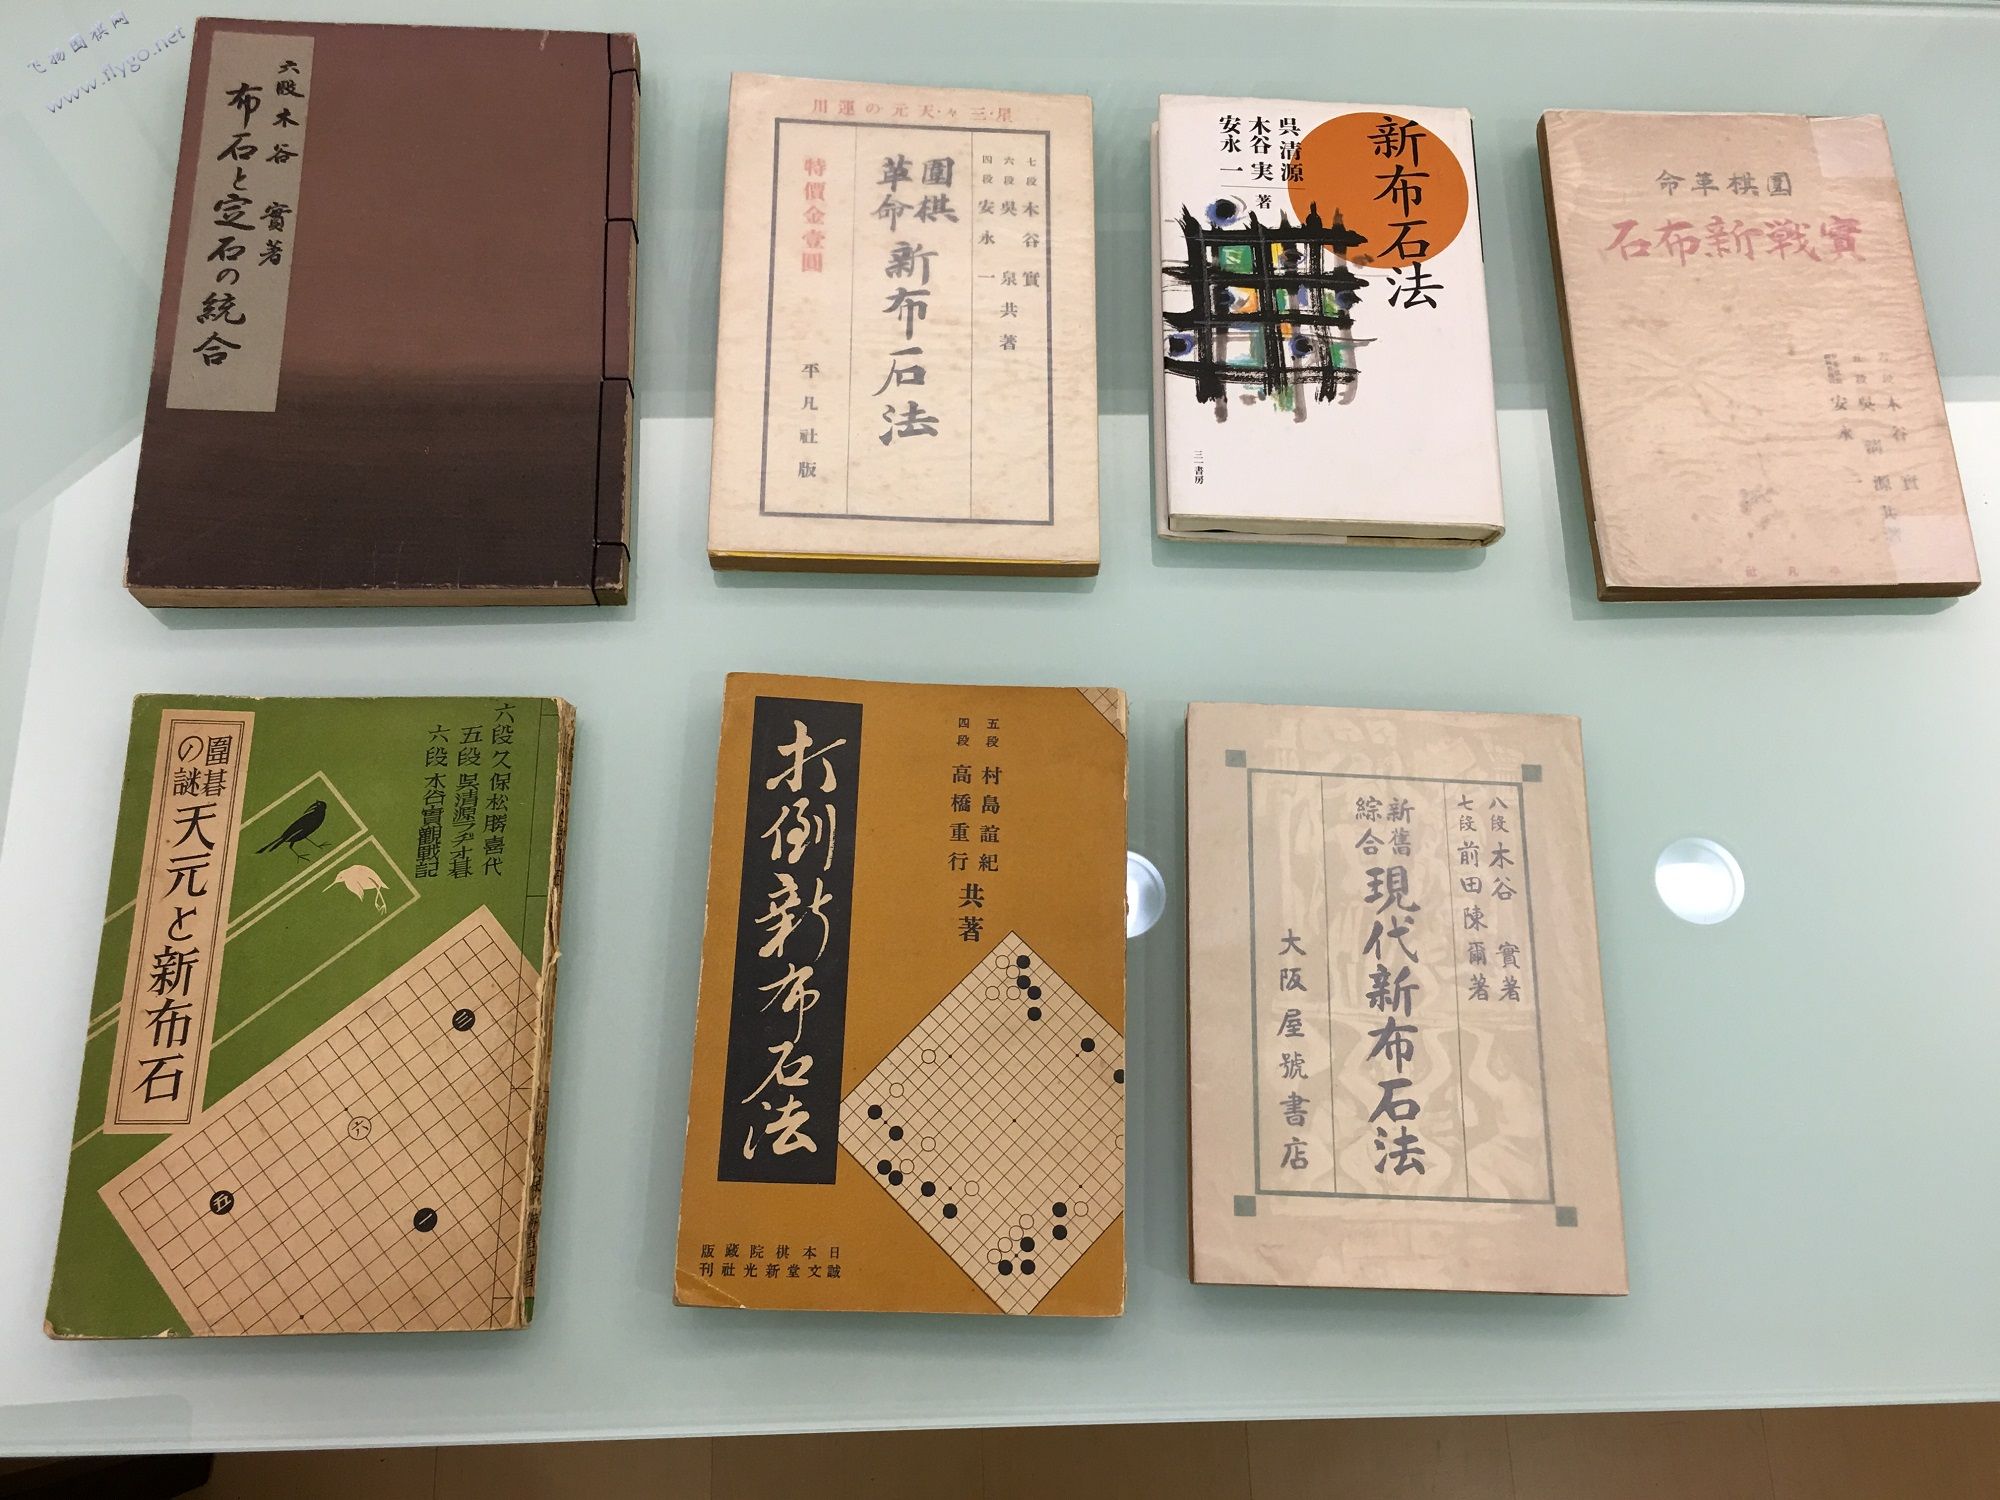 飞扬围棋网
www.flygo.net
六段 木谷 實著
布石と定石の統合
星・三々・天元の運用
七段 木谷實
六段 吳泉 共著
四段 安永一
圍棋革命 新布石法
特價金壹圓
平凡社版
新布石法
呉清源
木谷実 著
安永一
三一書房
圍棋革命
實戰新布石
木谷實
吳清源 共著
安永一
平凡社
六段 久保松勝喜代
五段 吳清源ラヂオ碁
六段 木谷實觀戰記
圍碁の謎 天元と新布石
三
六
五
一
五段 村島誼紀
四段 高橋重行 共著
打倒新布石法
日本棋院藏版
誠文堂新光社刊
八段 木谷 實著
七段 前田陳爾著
新舊綜合 現代新布石法
大阪屋號書店